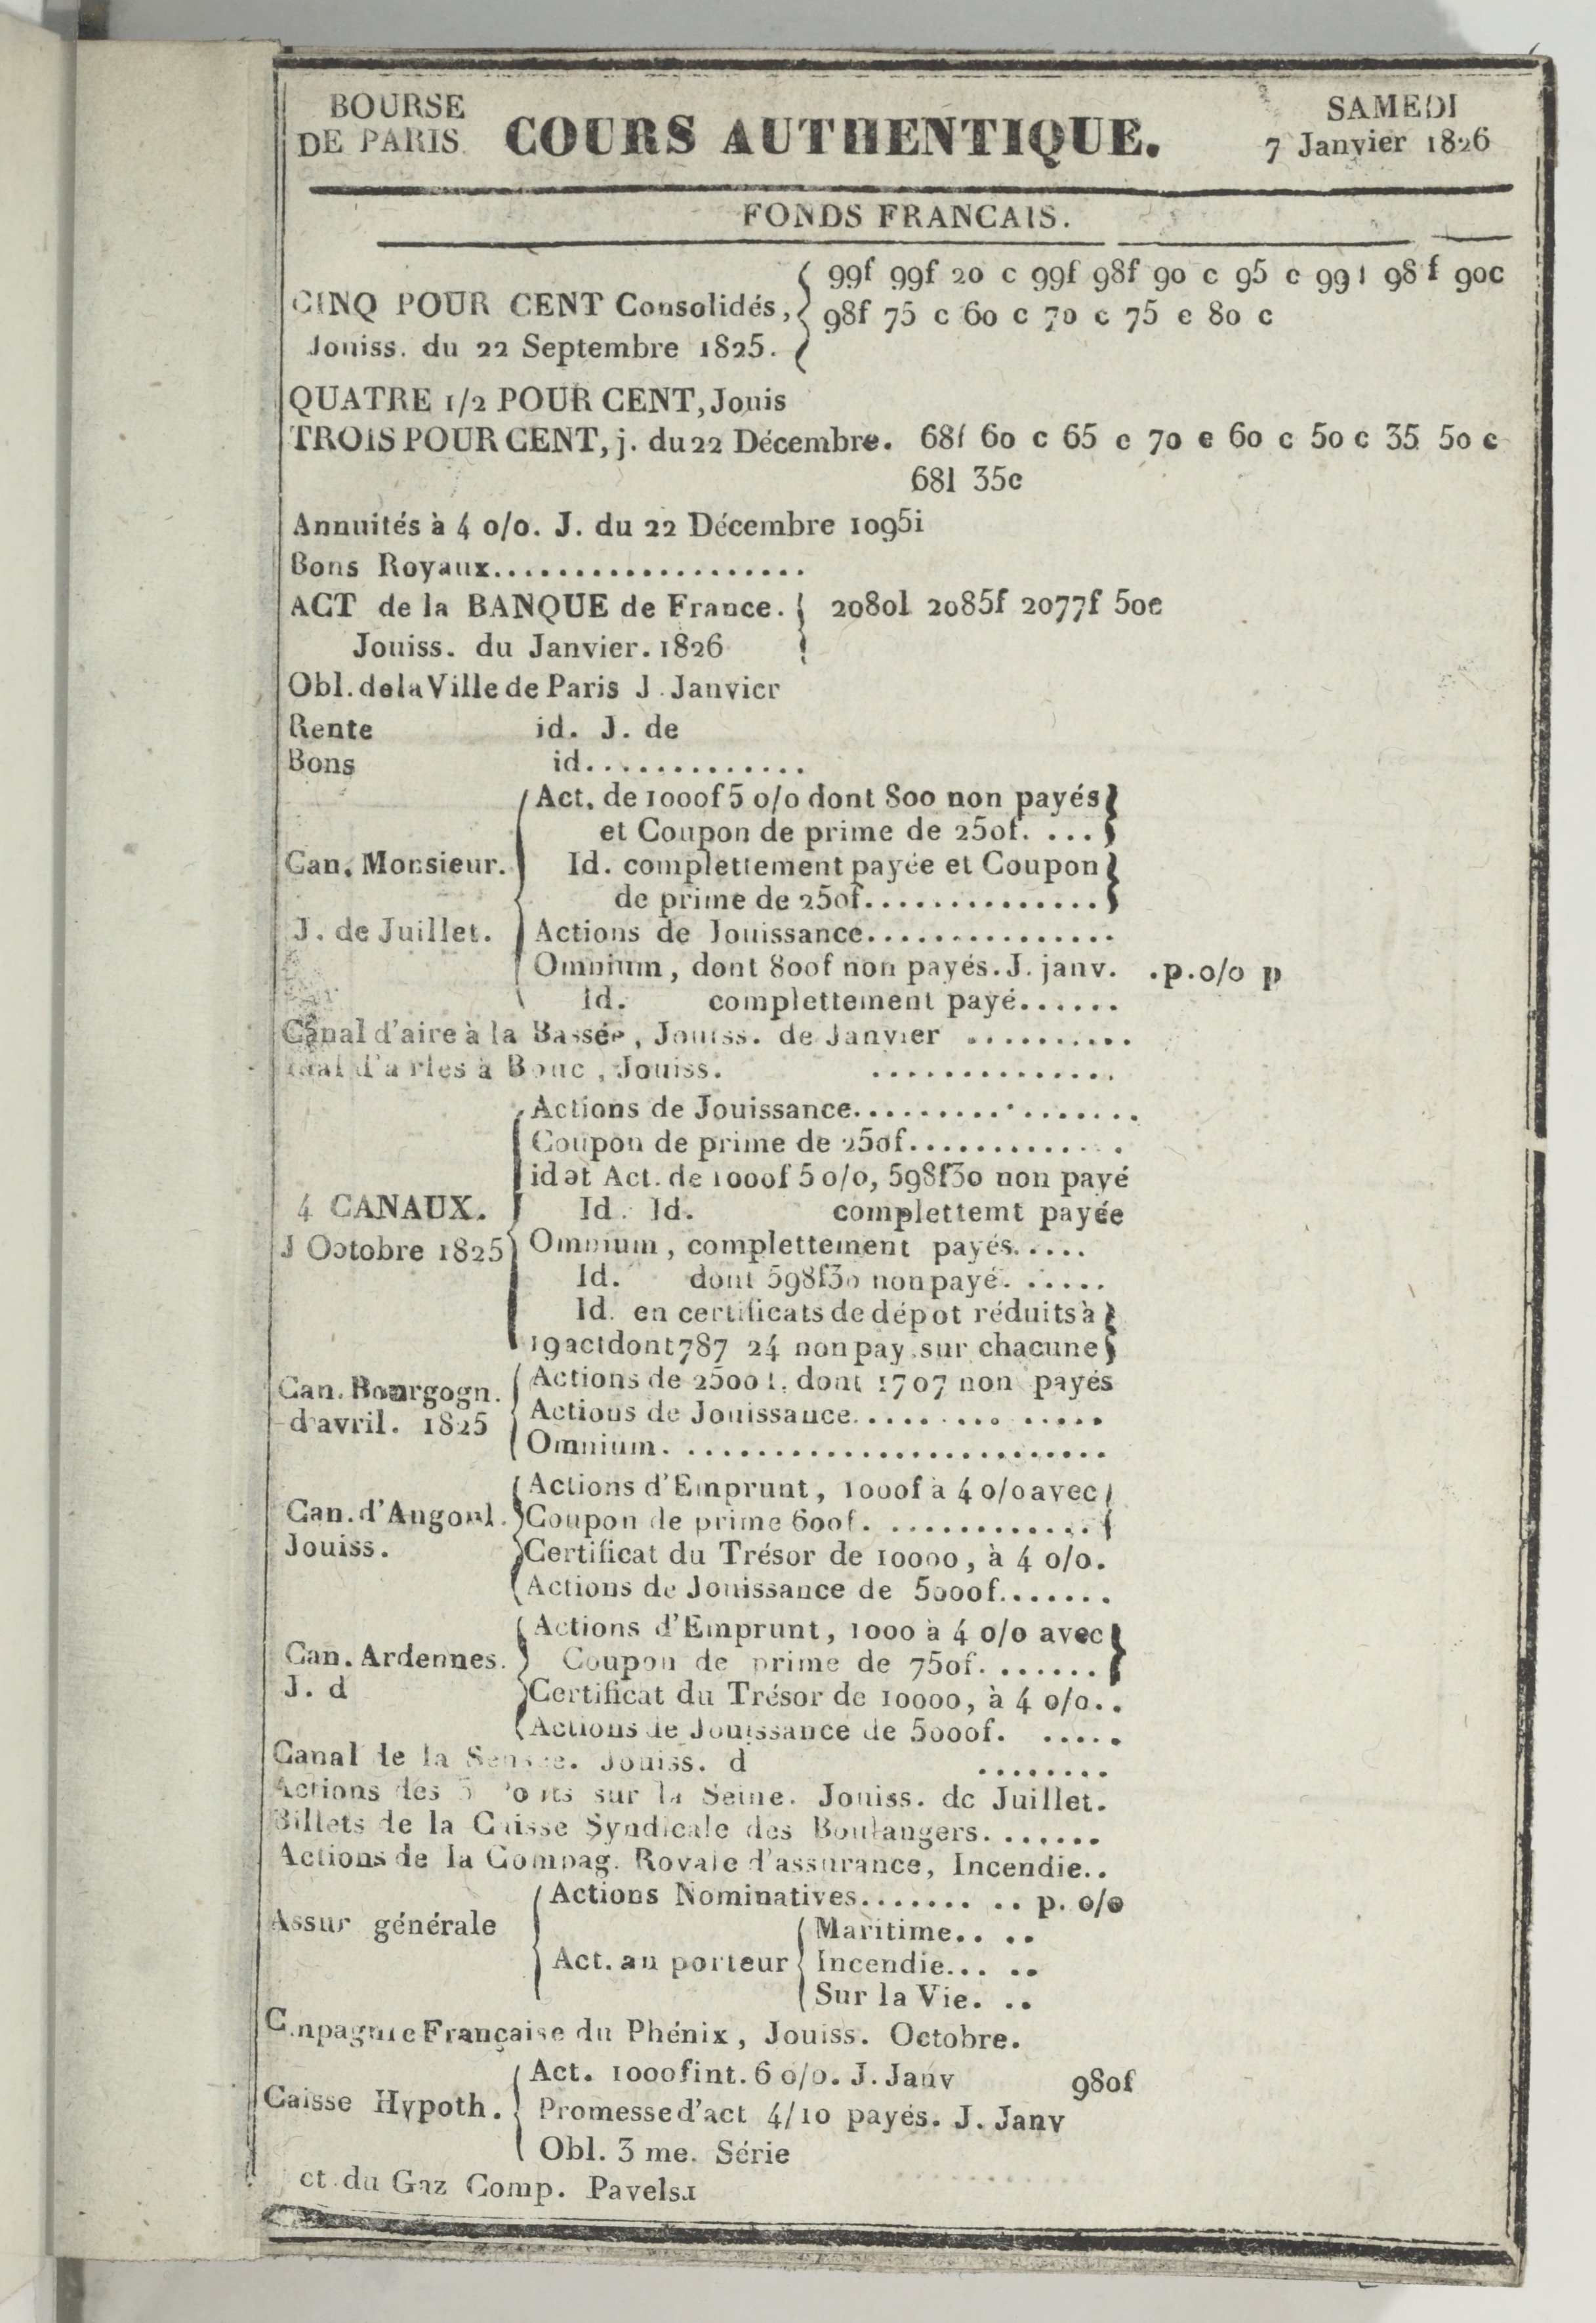 BOURSE
DE PARIS
COURS AUTHENTIQUE.
SAMEDI
7 Janvier 1826
FONDS FRANCAIS.
CINQ POUR CENT Consolidés,
Jouiss. du 22 Septembre 1825.
99f 99f 20 c 99f 98f 90 c 95 c 99f 98 f 90c
98f 75 c 60 c 70 c 75 c 80 c
QUATRE 1/2 POUR CENT, Jouis
TROIS POUR CENT, j. du 22 Décembre. 68f 60 c 65 c 70 c 60 c 50 c 35 50 c
68f 35c
Annuités à 4 o/o. J. du 22 Décembre 1095f
Bons Royaux...................
ACT de la BANQUE de France. 2080f 2085f 2077f 50c
Jouiss. du Janvier. 1826
Obl. de la Ville de Paris J. Janvier
Rente id. J. de
Bons id..............
Can. Monsieur.
J. de Juillet.
Act. de 1000f 5 o/o dont 800 non payés
et Coupon de prime de 250f. ...
Id. complettement payée et Coupon
de prime de 250f..............
Actions de Jouissance...............
Omnium, dont 800f non payés. J. janv. .p.o/o p
Id. complettement payé......
Canal d'aire à la Bassée, Jouiss. de Janvier ..........
nal d'arles à Bouc, Jouiss. ..............
4 CANAUX.
J Octobre 1825
Actions de Jouissance.................
Coupon de prime de 250f.............
id et Act. de 1000f 5 o/o, 598f30 non payé
Id. Id. complettemt payée
Omnium, complettement payés.....
Id. dont 598f30 non payé. .....
Id. en certificats de dépot réduits à
19 act dont 787 24 non pay. sur chacune
Can. Bourgogn.
d'avril. 1825
Actions de 2500 f. dont 1707 non payés
Actions de Jouissance..............
Omnium. ........................
Can. d'Angoul.
Jouiss.
Actions d'Emprunt, 1000f à 4 o/o avec
Coupon de prime 600f. ............
Certificat du Trésor de 10000, à 4 o/o.
Actions de Jouissance de 5000f.......
Can. Ardennes.
J. d
Actions d'Emprunt, 1000 à 4 o/o avec
Coupon de prime de 750f. ......
Certificat du Trésor de 10000, à 4 o/o..
Actions de Jouissance de 5000f. .....
Canal de la Sensée. Jouiss. d ........
Actions des 3 Ponts sur la Seine. Jouiss. de Juillet.
Billets de la Caisse Syndicale des Boulangers.......
Actions de la Compag. Royale d'assurance, Incendie..
Assur générale
Actions Nominatives....... .. p. o/o
Act. au porteur
Maritime.. ..
Incendie... ..
Sur la Vie. ..
C.npagnie Française du Phénix, Jouiss. Octobre.
Caisse Hypoth.
Act. 1000f int. 6 o/o. J. Janv 980f
Promesse d'act 4/10 payés. J. Janv
Obl. 3 me. Série
ct. du Gaz Comp. Pavels.1